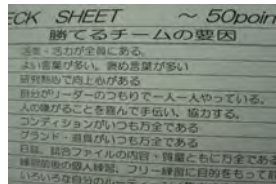 ECK SHEET ～50poin
勝てるチームの要因
活気・活力が全員にある。
よい言葉が多い。褒め言葉が多い
研究熱心で向上心がある
自分がリーダーのつもりで一人一人やっている。
人の嫌がることを喜んで手伝い、協力する。
コンディションがいつも万全である
グランド・道具がいつも万全である
日誌、試合ファイルの内容・質量ともに万全である
練習前後の個人練習、フリー練習に目的をもって
いろいろな自分の